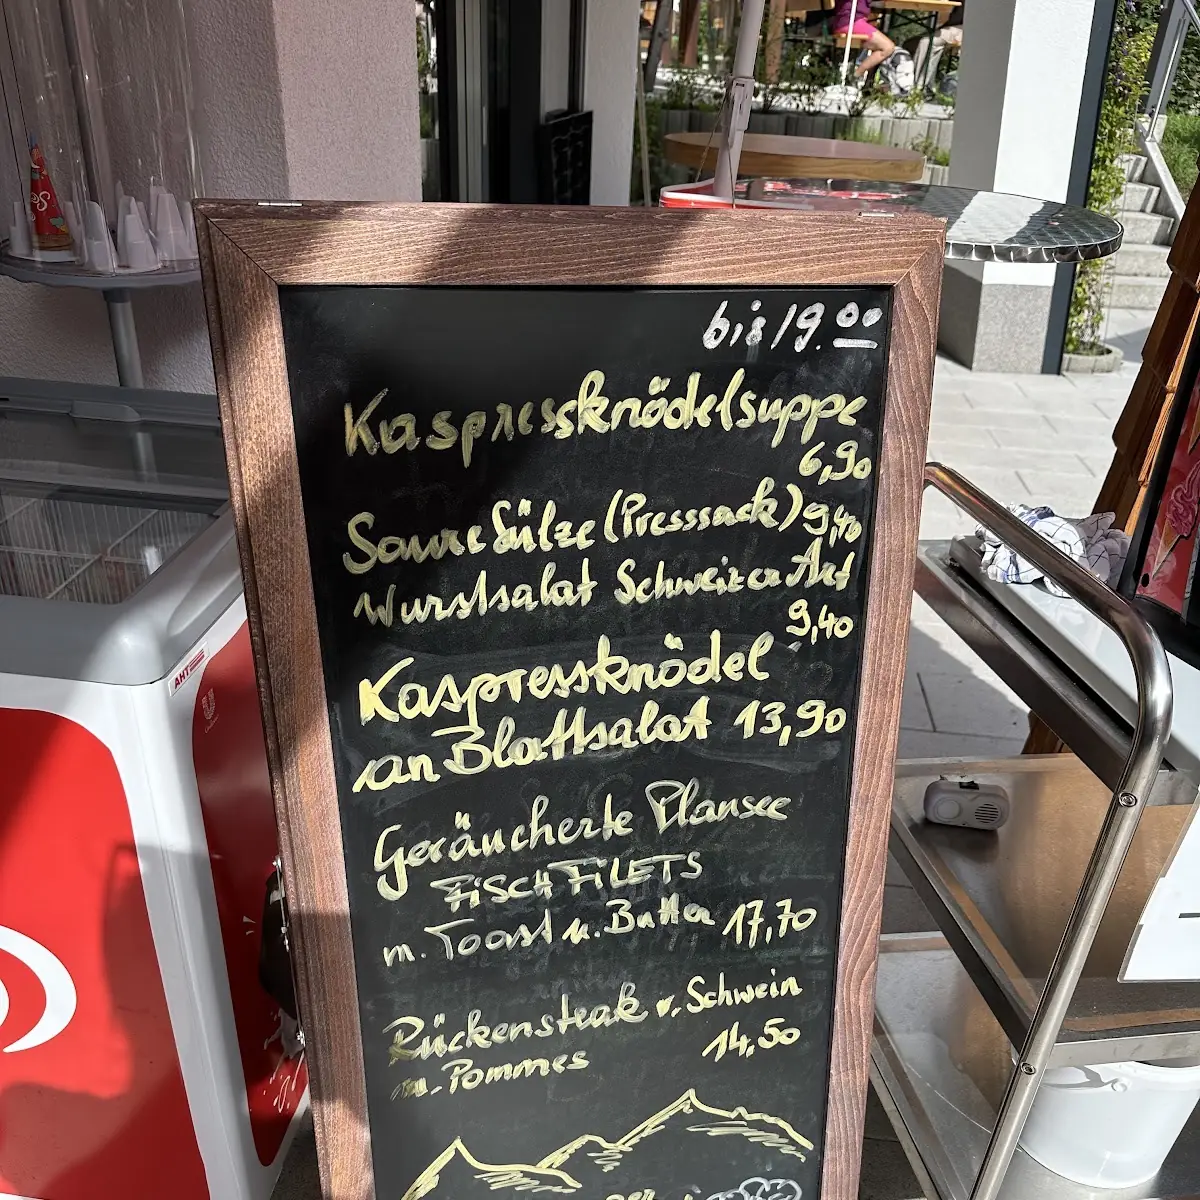 bis 19.00
Kaspressknödelsuppe
6,90
Saure Sülze (Presssack) 9,40
Wurstsalat Schweizer Art
9,40
Kaspressknödel
an Blattsalat 13,90
Geräucherte Plansee
FiSCHFiLETS
m. Toast u. Butter 17,70
Rückensteak v. Schwein
m. Pommes 14,50
AHT